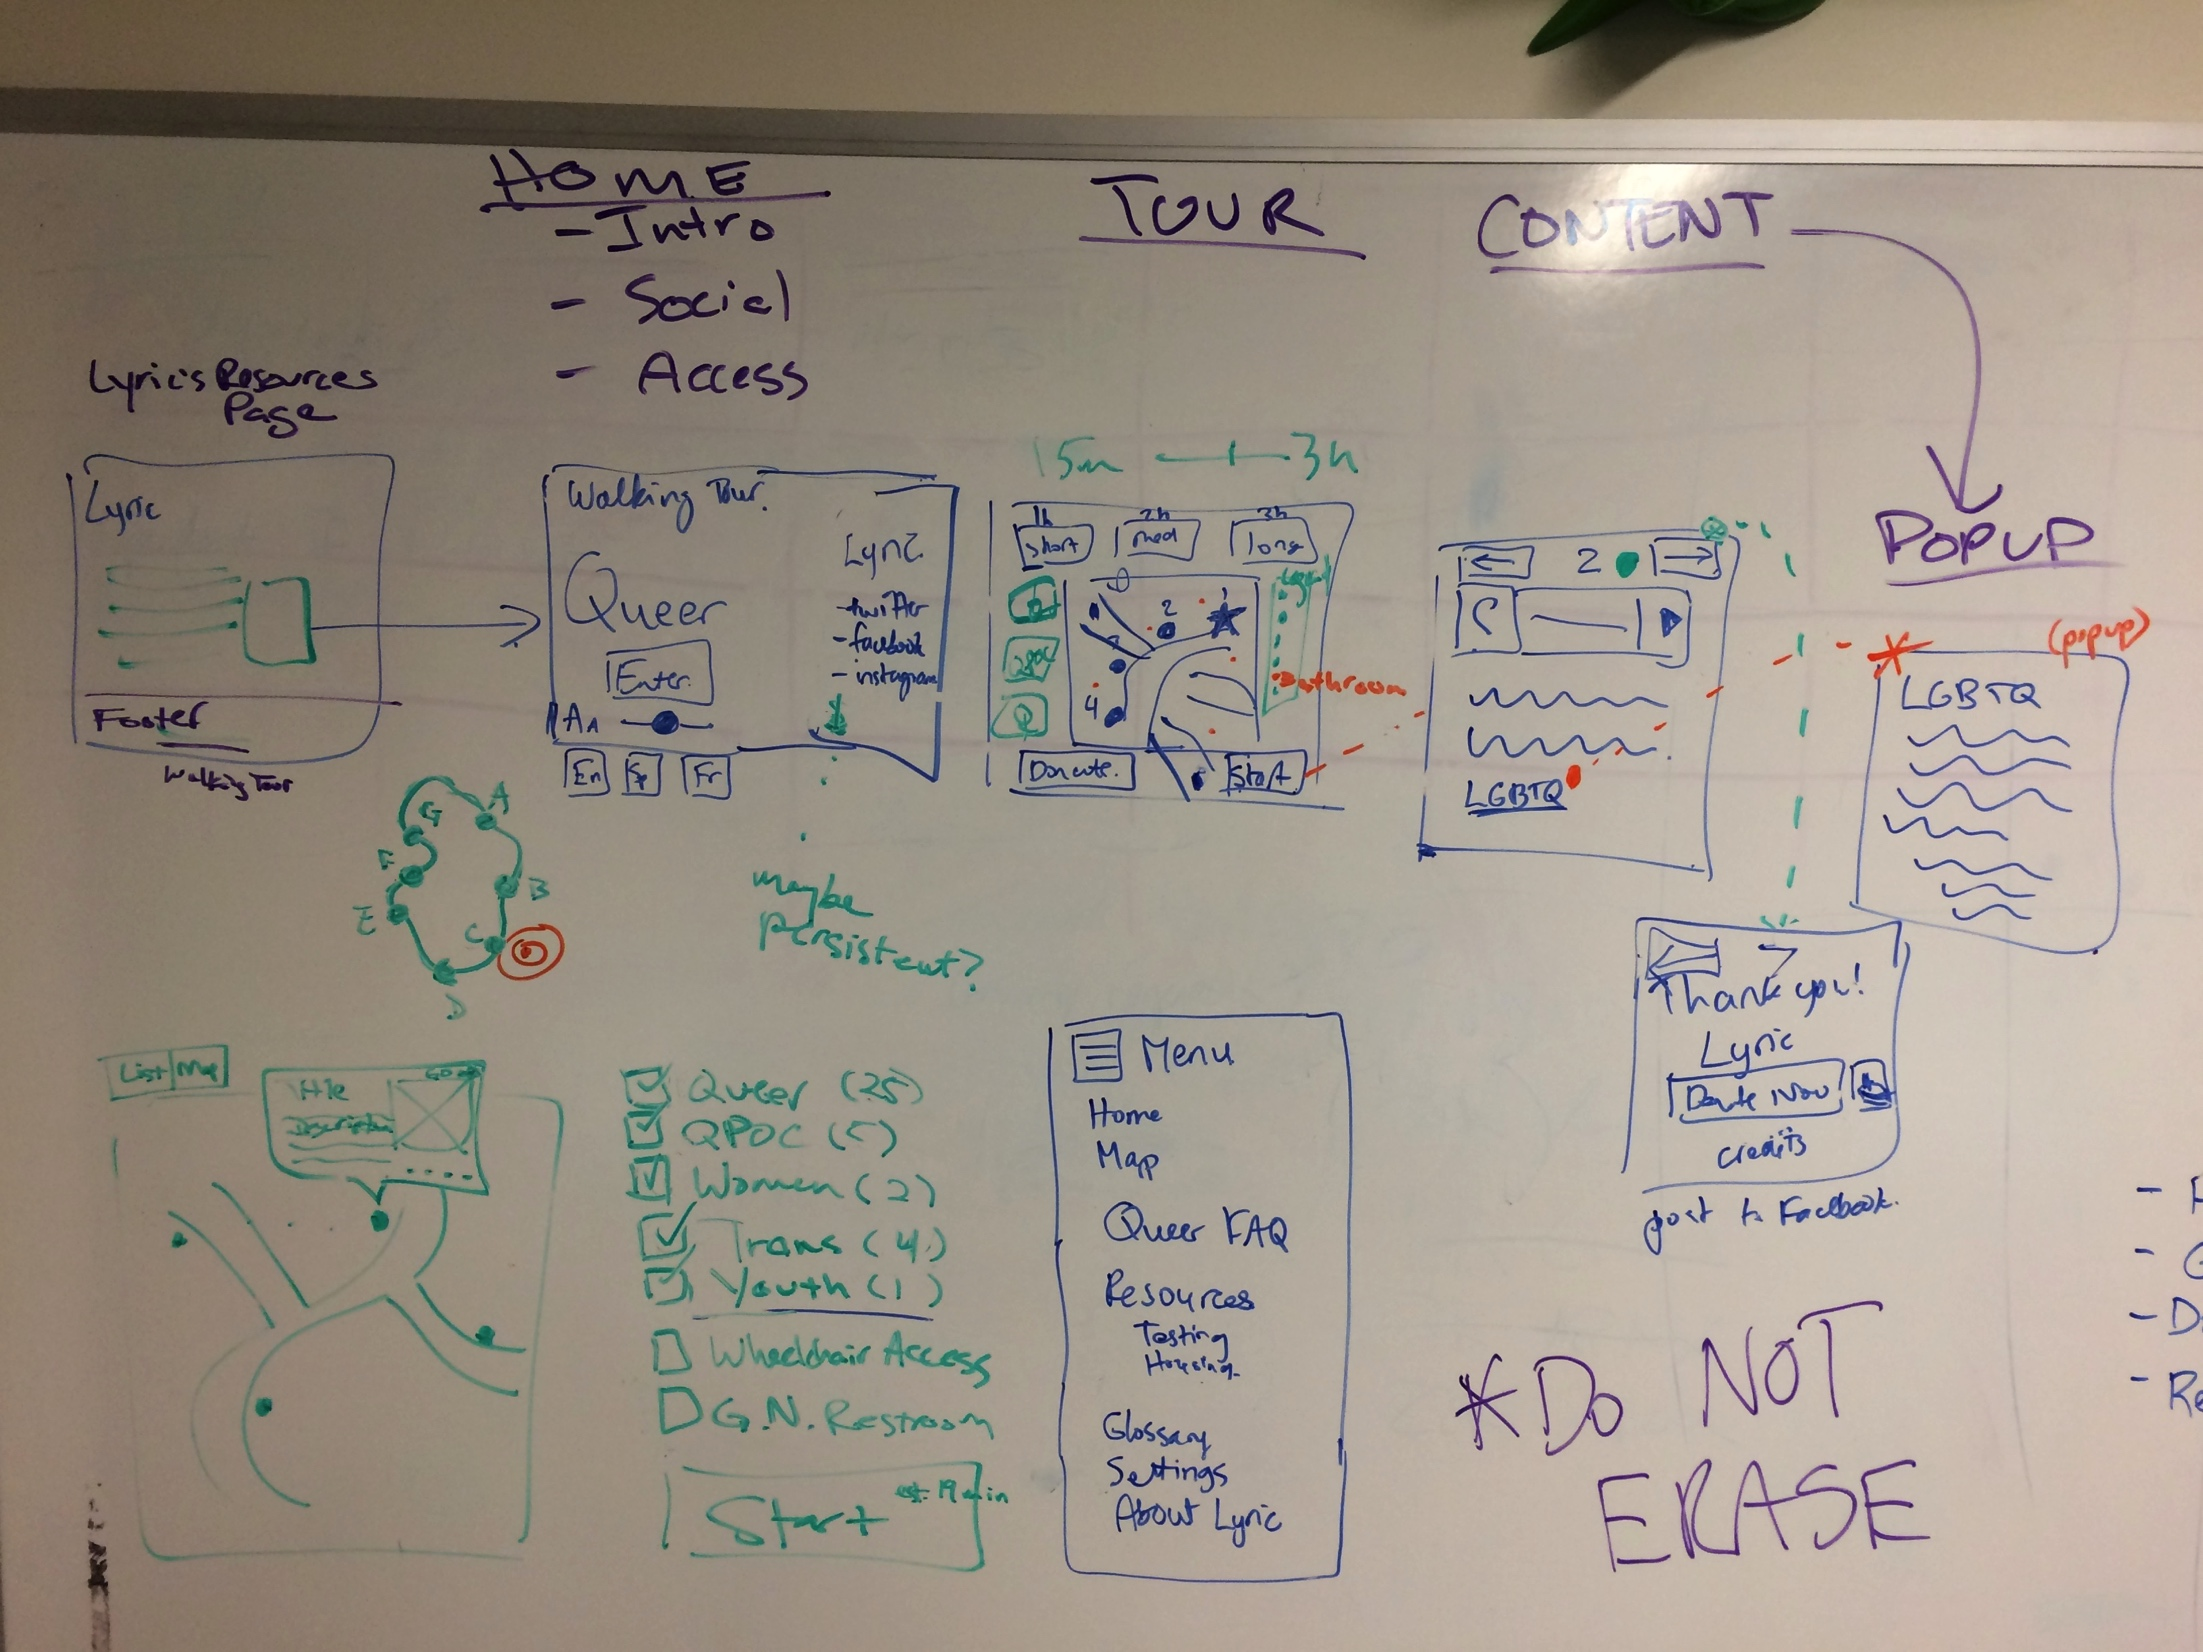 HOME
- Intro
- Social
- Access
TOUR
CONTENT
POPUP
Lyric's Resources
Page
Lyric
Footer
Walking Tour
Walking Tour.
Queer
Enter
Lyric
- twitter
- facebook
- instagram
AA
En
Sp
Fr
maybe
persistent?
15m
3h
1h
2h
3h
short
med
long
1
2
3
4
Bathroom
Donate
Start
2
LGBTQ
(popup)
LGBTQ
Thank you!
Lyric
Donate Now
credits
post to Facebook.
A
B
C
D
E
F
G
List
Map
title
Description
GO
Queer (25)
QPOC (5)
Women (2)
Trans (4)
Youth (1)
Wheelchair Access
G.N. Restroom
Start
est. 19 min
Menu
Home
Map
Queer FAQ
Resources
Testing
Housing
Glossary
Settings
About Lyric
*DO NOT
ERASE